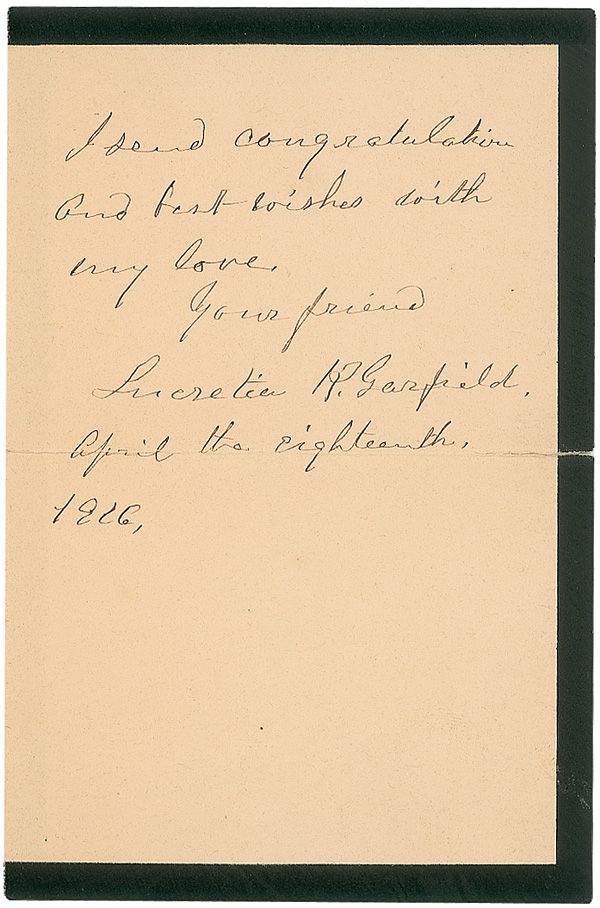 I send congratulation
and best wishes with
my love.
Your friend
Lucretia R. Garfield.
April the eighteenth.